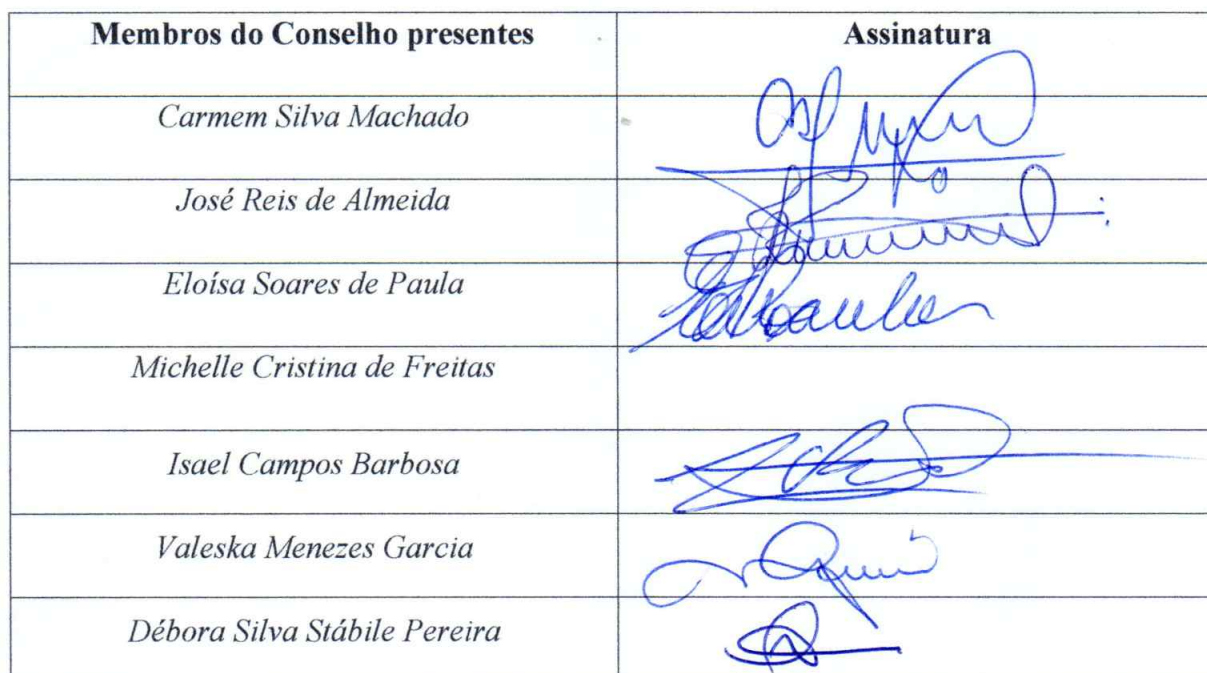 Membros do Conselho presentes Assinatura
Carmem Silva Machado
José Reis de Almeida
Eloísa Soares de Paula
Michelle Cristina de Freitas
Isael Campos Barbosa
Valeska Menezes Garcia
Débora Silva Stábile Pereira